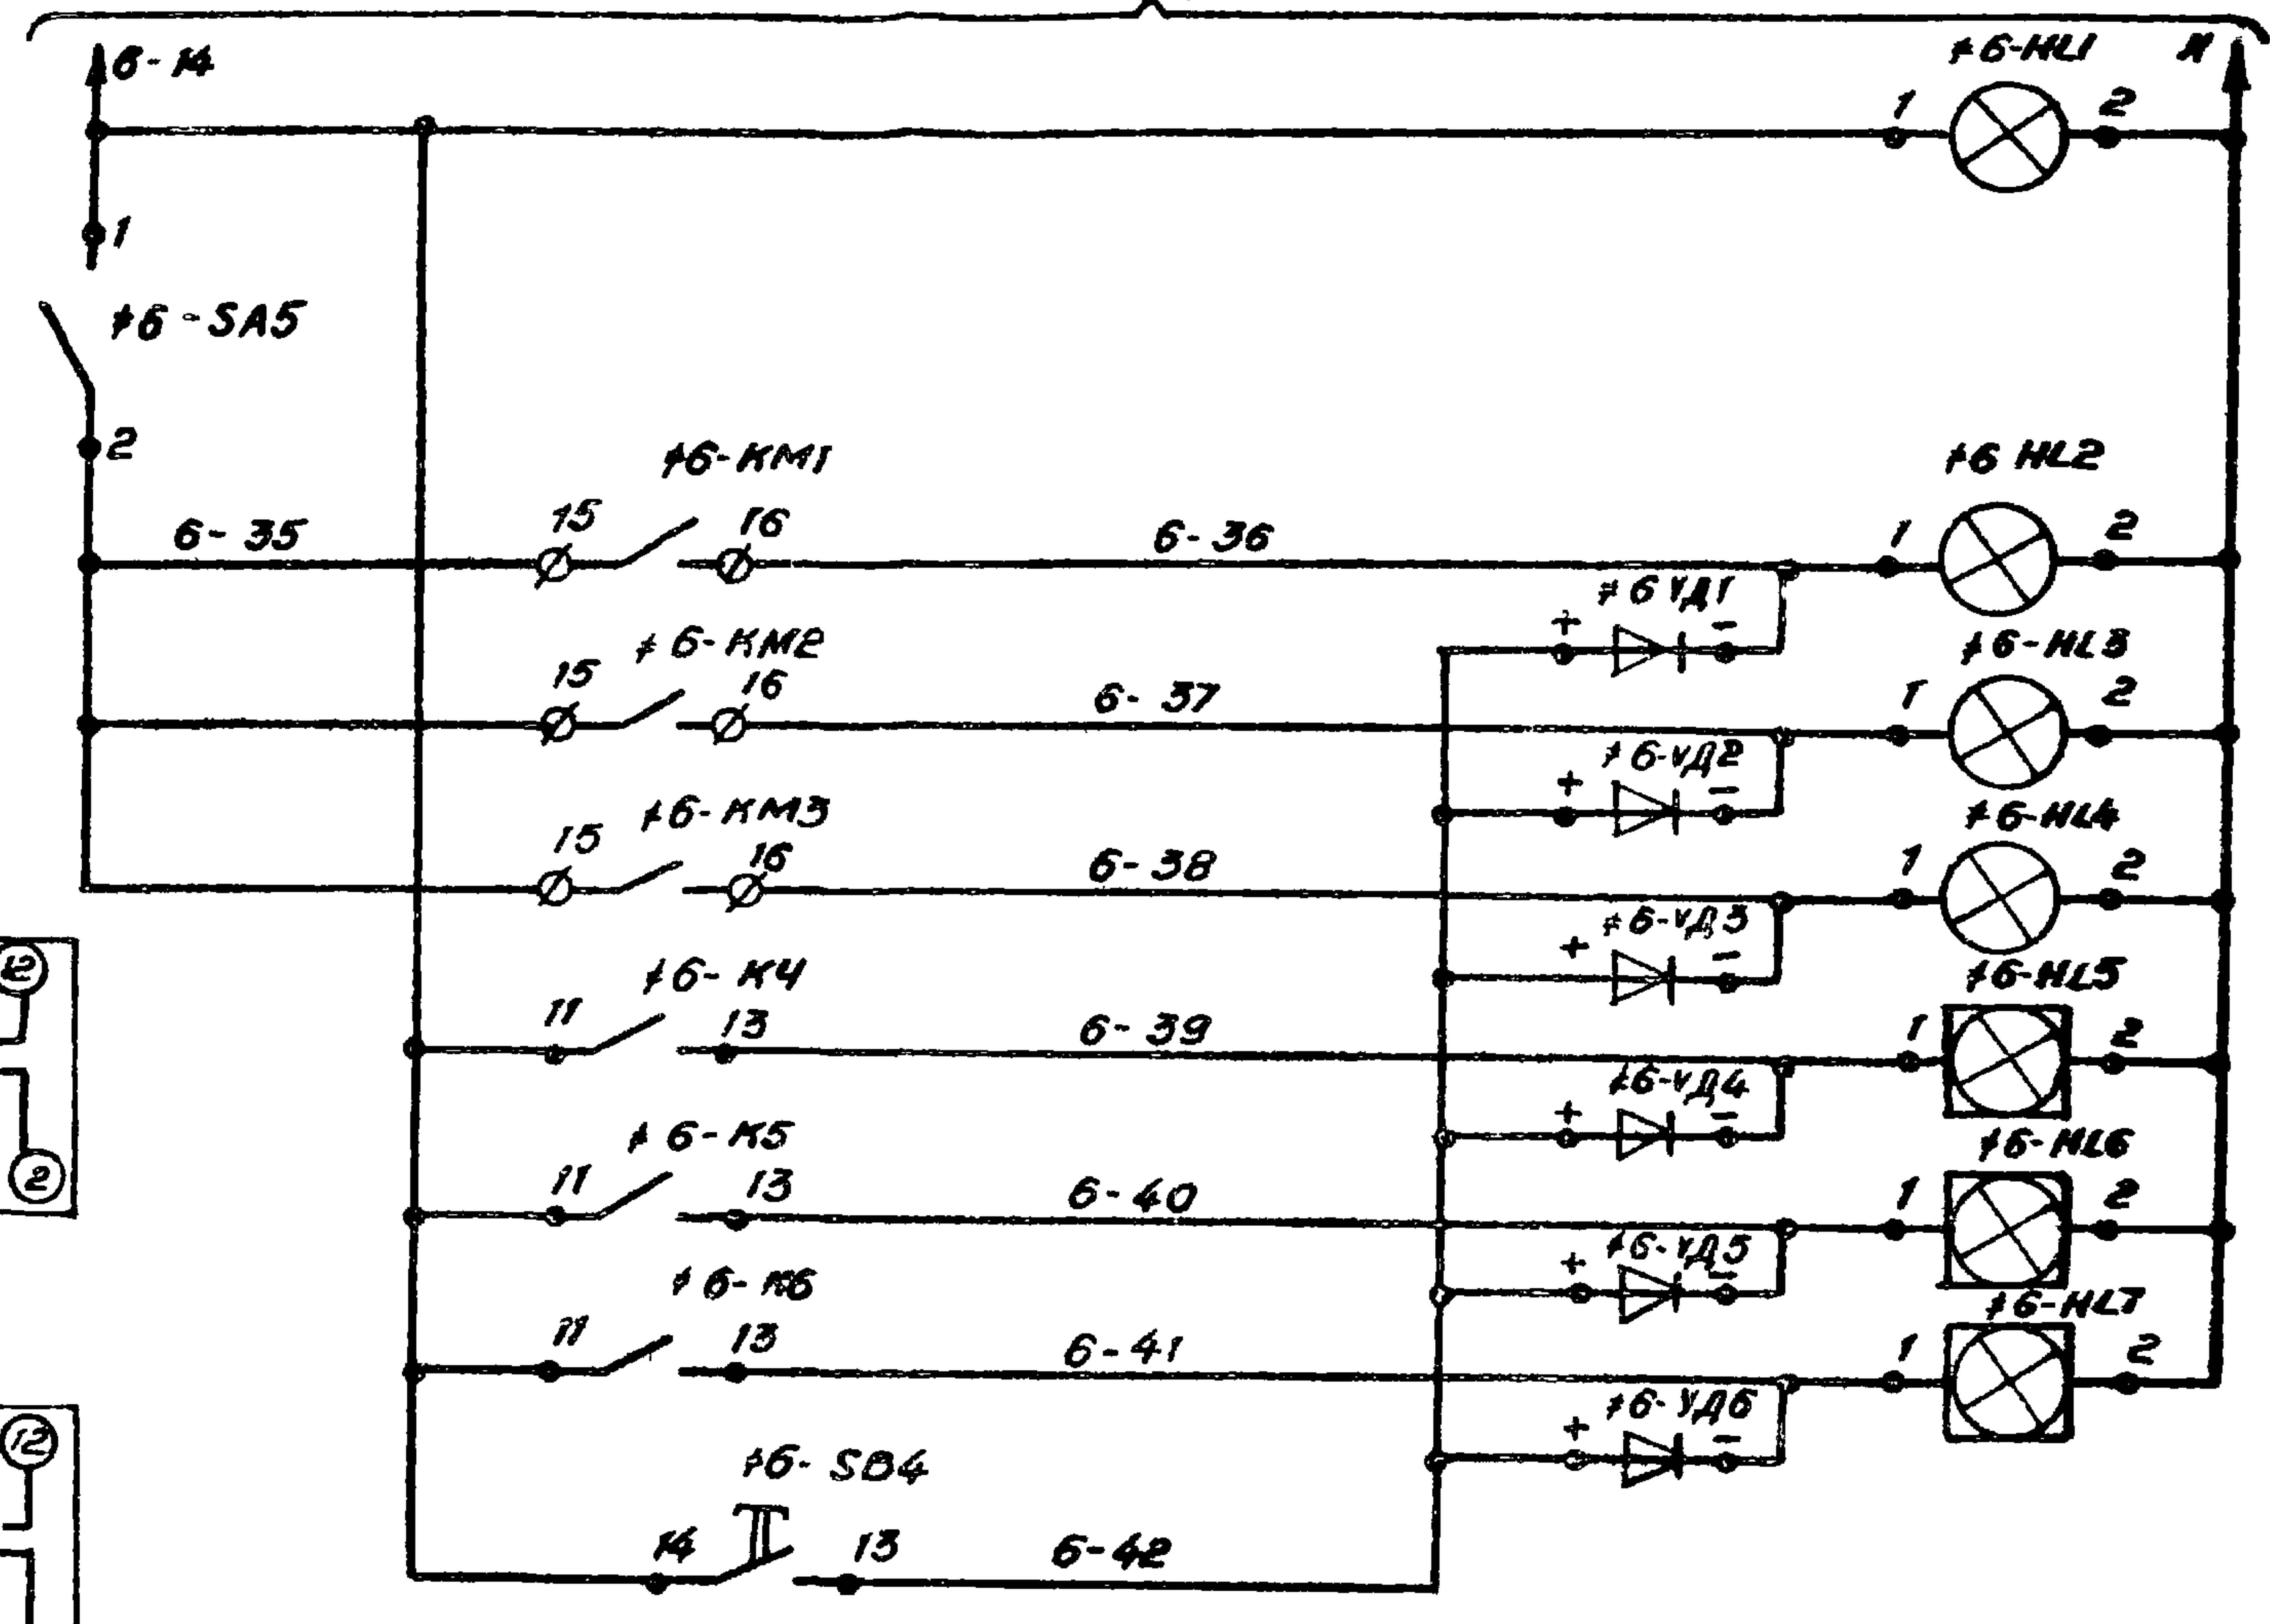 6-14 ≠6-HL1 N
1 2
1
≠6-SA5
2
≠6-KM1 ≠6 HL2
6-35 15 16 6-36 1 2
≠6 VД1
+ -
≠6-KM2 ≠6-HL3
15 16 6-37 1 2
≠6-VД2
+ -
≠6-KM3 ≠6-HL4
15 16 6-38 1 2
≠6-VД3
+ -
12 ≠6-K4 ≠6-HL5
11 13 6-39 1 2
≠6-VД4
+ -
≠6-K5 ≠6-HL6
2 11 13 6-40 1 2
≠6-VД5
+ -
≠6-K6 ≠6-HL7
11 13 6-41 1 2
≠6-VД6
+ -
12 ≠6-SB4
14 13 6-42